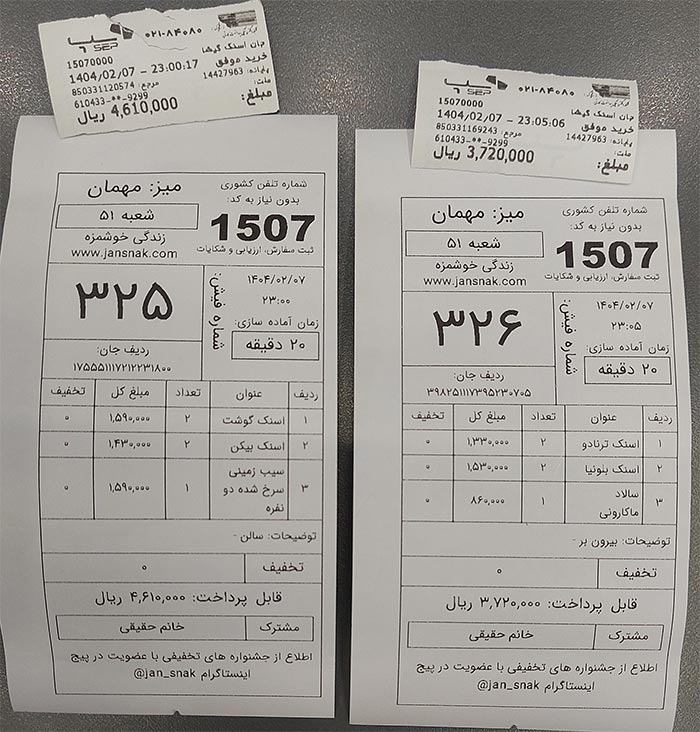 SEP
۰۲۱-۸۴۰۸۰
15070000
جان اسنک گیشا
1404/02/07 – 23:00:17
خرید موفق
850331120574 مرجع:
پایانه: 14427963
610433-**-9299
ملت:
مبلغ: 4,610,000 ریال
شماره تلفن کشوری
بدون نیاز به کد:
1507
ثبت سفارش، ارزیابی و شکایات
میز: مهمان
شعبه ۵۱
زندگی خوشمزه
www.jansnak.com
۱۴۰۴/۰۲/۰۷
۲۳:۰۰
زمان آماده سازی:
۲۰ دقیقه
شماره فیش:
۳۲۵
ردیف جان:
۱۷۵۵۵۱۱۱۷۲۱۲۲۳۱۸۰۰
ردیف عنوان تعداد مبلغ کل تخفیف
۱ اسنک گوشت ۲ ۱,۵۹۰,۰۰۰ ۰
۲ اسنک بیکن ۲ ۱,۴۳۰,۰۰۰ ۰
۳ سیب زمینی سرخ شده دو نفره ۱ ۱,۵۹۰,۰۰۰ ۰
توضیحات: سالن -
تخفیف ۰
قابل پرداخت: ۴,۶۱۰,۰۰۰ ریال
مشترک خانم حقیقی
اطلاع از جشنواره های تخفیفی با عضویت در پیج
اینستاگرام jan_snak@
SEP
۰۲۱-۸۴۰۸۰
15070000
جان اسنک گیشا
1404/02/07 – 23:05:06
خرید موفق
850331169243 مرجع:
پایانه: 14427963
610433-**-9299
ملت:
مبلغ: 3,720,000 ریال
شماره تلفن کشوری
بدون نیاز به کد:
1507
ثبت سفارش، ارزیابی و شکایات
میز: مهمان
شعبه ۵۱
زندگی خوشمزه
www.jansnak.com
۱۴۰۴/۰۲/۰۷
۲۳:۰۵
زمان آماده سازی:
۲۰ دقیقه
شماره فیش:
۳۲۶
ردیف جان:
۳۹۸۲۵۱۱۱۷۳۹۵۲۳۰۷۰۵
ردیف عنوان تعداد مبلغ کل تخفیف
۱ اسنک ترنادو ۲ ۱,۳۳۰,۰۰۰ ۰
۲ اسنک بلونیا ۲ ۱,۵۳۰,۰۰۰ ۰
۳ سالاد ماکارونی ۱ ۸۶۰,۰۰۰ ۰
توضیحات: بیرون بر -
تخفیف ۰
قابل پرداخت: ۳,۷۲۰,۰۰۰ ریال
مشترک خانم حقیقی
اطلاع از جشنواره های تخفیفی با عضویت در پیج
اینستاگرام jan_snak@